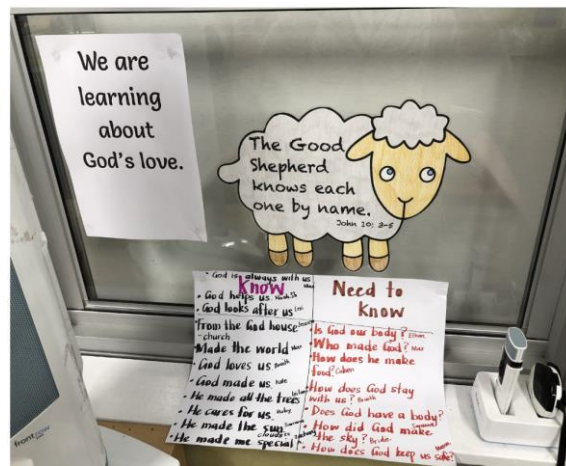 We are
learning
about
God's love.
The Good
Shepherd
knows each
one by name.
John 10: 3-5
Know
• God is always with us
• God helps us Noah.Sh
• God looks after us
From the God house
church
Made the world
• God loves us
• God made us. Kate
• He made all the trees
• He cares for us. Ruby
• He made the sun
clouds
• He made me special
Need to
Know
• Is God our body? Ethan
• Who made God? Max
• How does he make
food? Cohen
• How does God stay
with us?
• Does God have a body?
• How did God make
the sky? Brodie
• How does God keep us safe?
frontrow